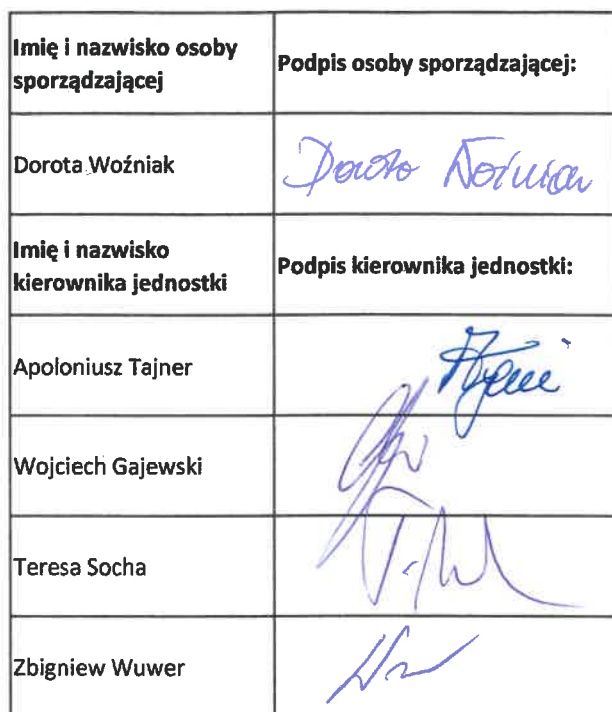 Imię i nazwisko osoby
sporządzającej
Podpis osoby sporządzającej:
Dorota Woźniak
Dorota Woźniak
Imię i nazwisko
kierownika jednostki
Podpis kierownika jednostki:
Apoloniusz Tajner
Wojciech Gajewski
Teresa Socha
Zbigniew Wuwer